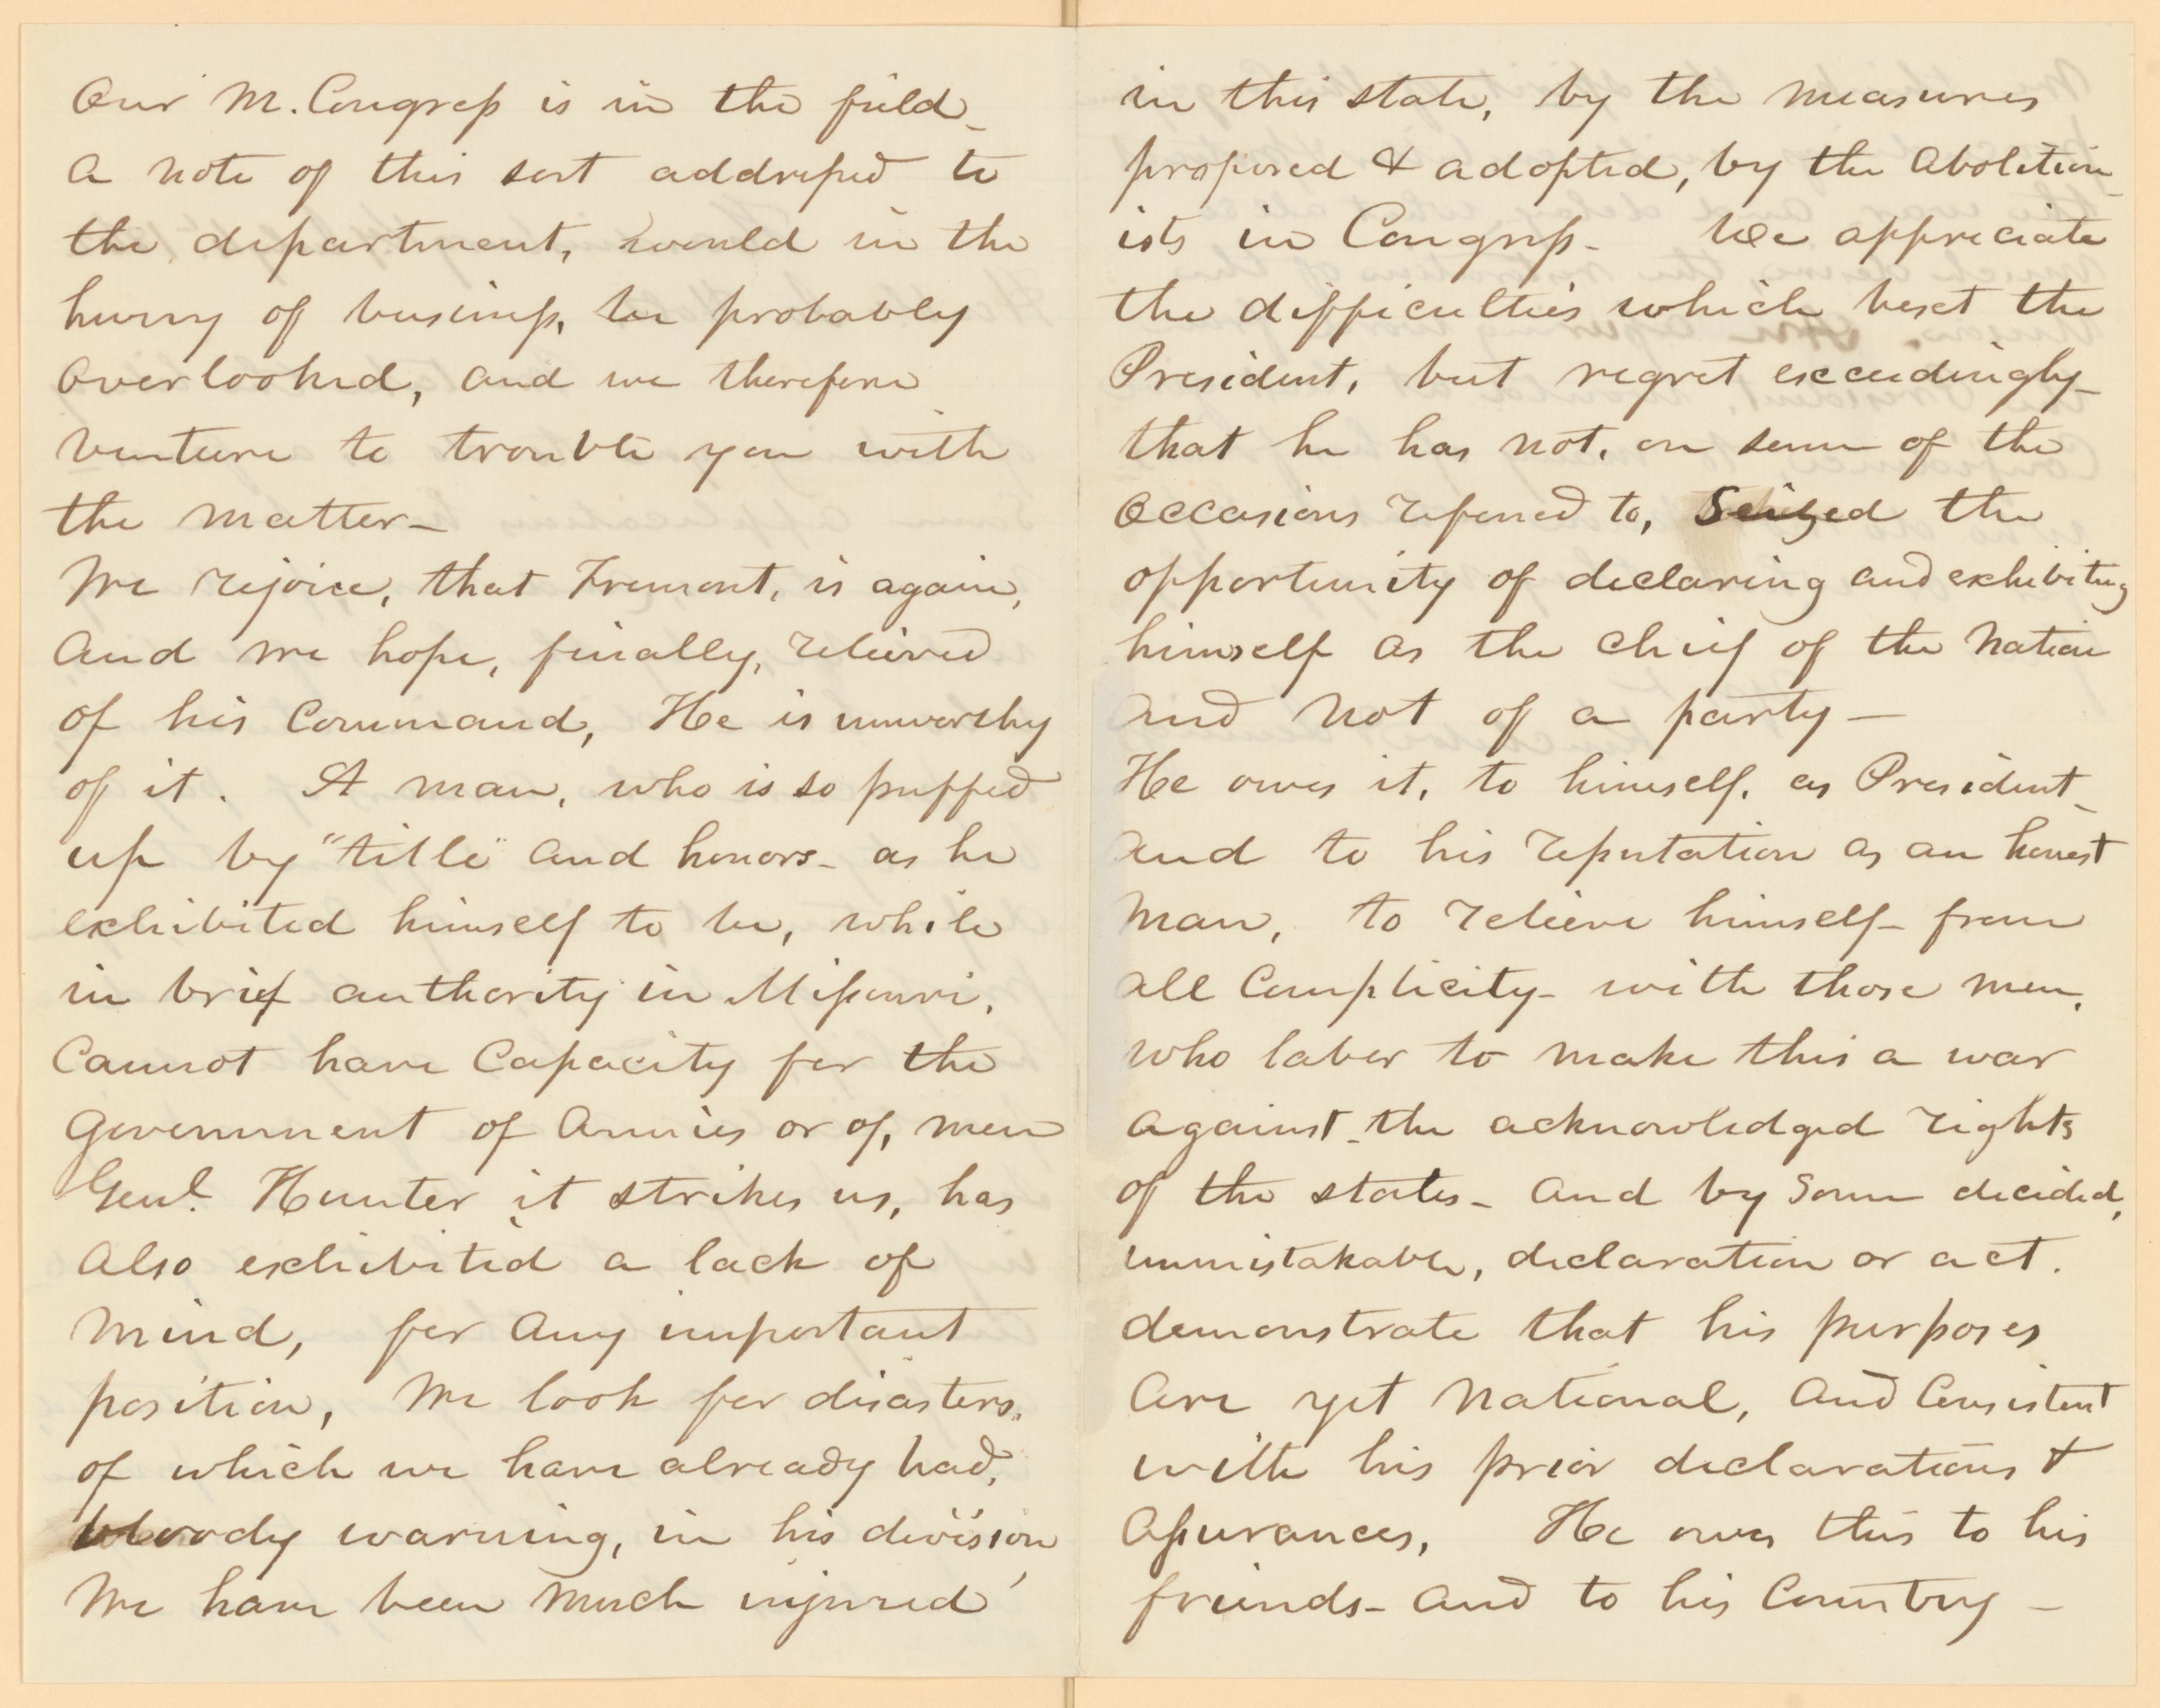 Our M. Congress is in the field_
a note of this sort addressed to
the department, would in the
hurry of business, be probably
overlooked, and we therefore
venture to trouble you with
the matter_
We rejoice, that Fremont, is again,
and we hope, finally, relieved
of his Command, He is unworthy
of it. A man, who is so puffed
up by "title" and honors_ as he
exhibited himself to be, while
in brief authority in Missouri,
Cannot have Capacity for the
government of Armies or of, men
Genl. Hunter it strikes us, has
also exhibited a lack of
mind, for any important
position, We look for disasters,
of which we have already had,
bloody warning, in his division,
We have been much injured
in this state, by the measures
proposed & adopted, by the Abolition_
ists in Congress_ We appreciate
the difficulties which beset the
President, but regret exceedingly_
that he has not, on some of the
occasions referred to, Seized the
opportunity of declaring and exhibiting
himself as the chief of the Nation
and not of a party—
He owes it, to himself, as President_
and to his reputation as an honest
man, to relieve himself_ from
all Complicity_ with those men,
who labor to make this a war
against_the acknowledged rights
of the states_ and by some decided,
unmistakable, declaration or act.
demonstrate that his purposes
are yet National, and Consistent
with his prior declarations &
assurances, He owes this to his
friends_ and to his Country—